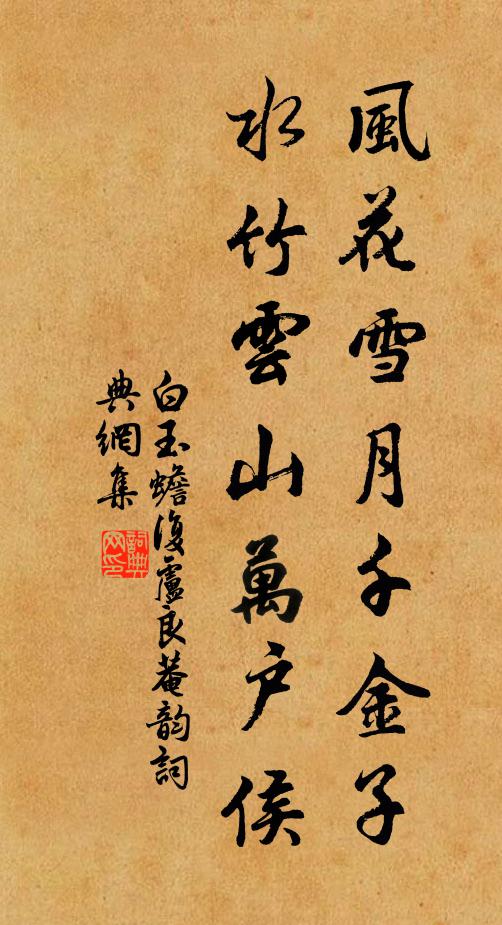 風花雪月千金子
水竹雲山萬户侯
白玉蟾復盧良菴韵詞
典網集
詞典
网印